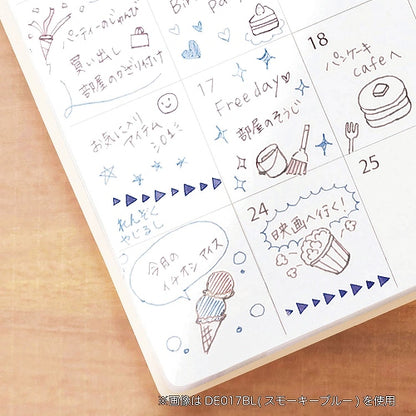 パーティーのじゅんび
買い出し
部屋のかざり付け
17
Free day
部屋のそうじ
18
パンケーキ
cafeへ
お気に入り
アイテム
れんぞく
やじるし
今月の
イチオシ アイス
24
映画へ行く!
25
※画像は DE017BL( スモーキーブルー ) を使用